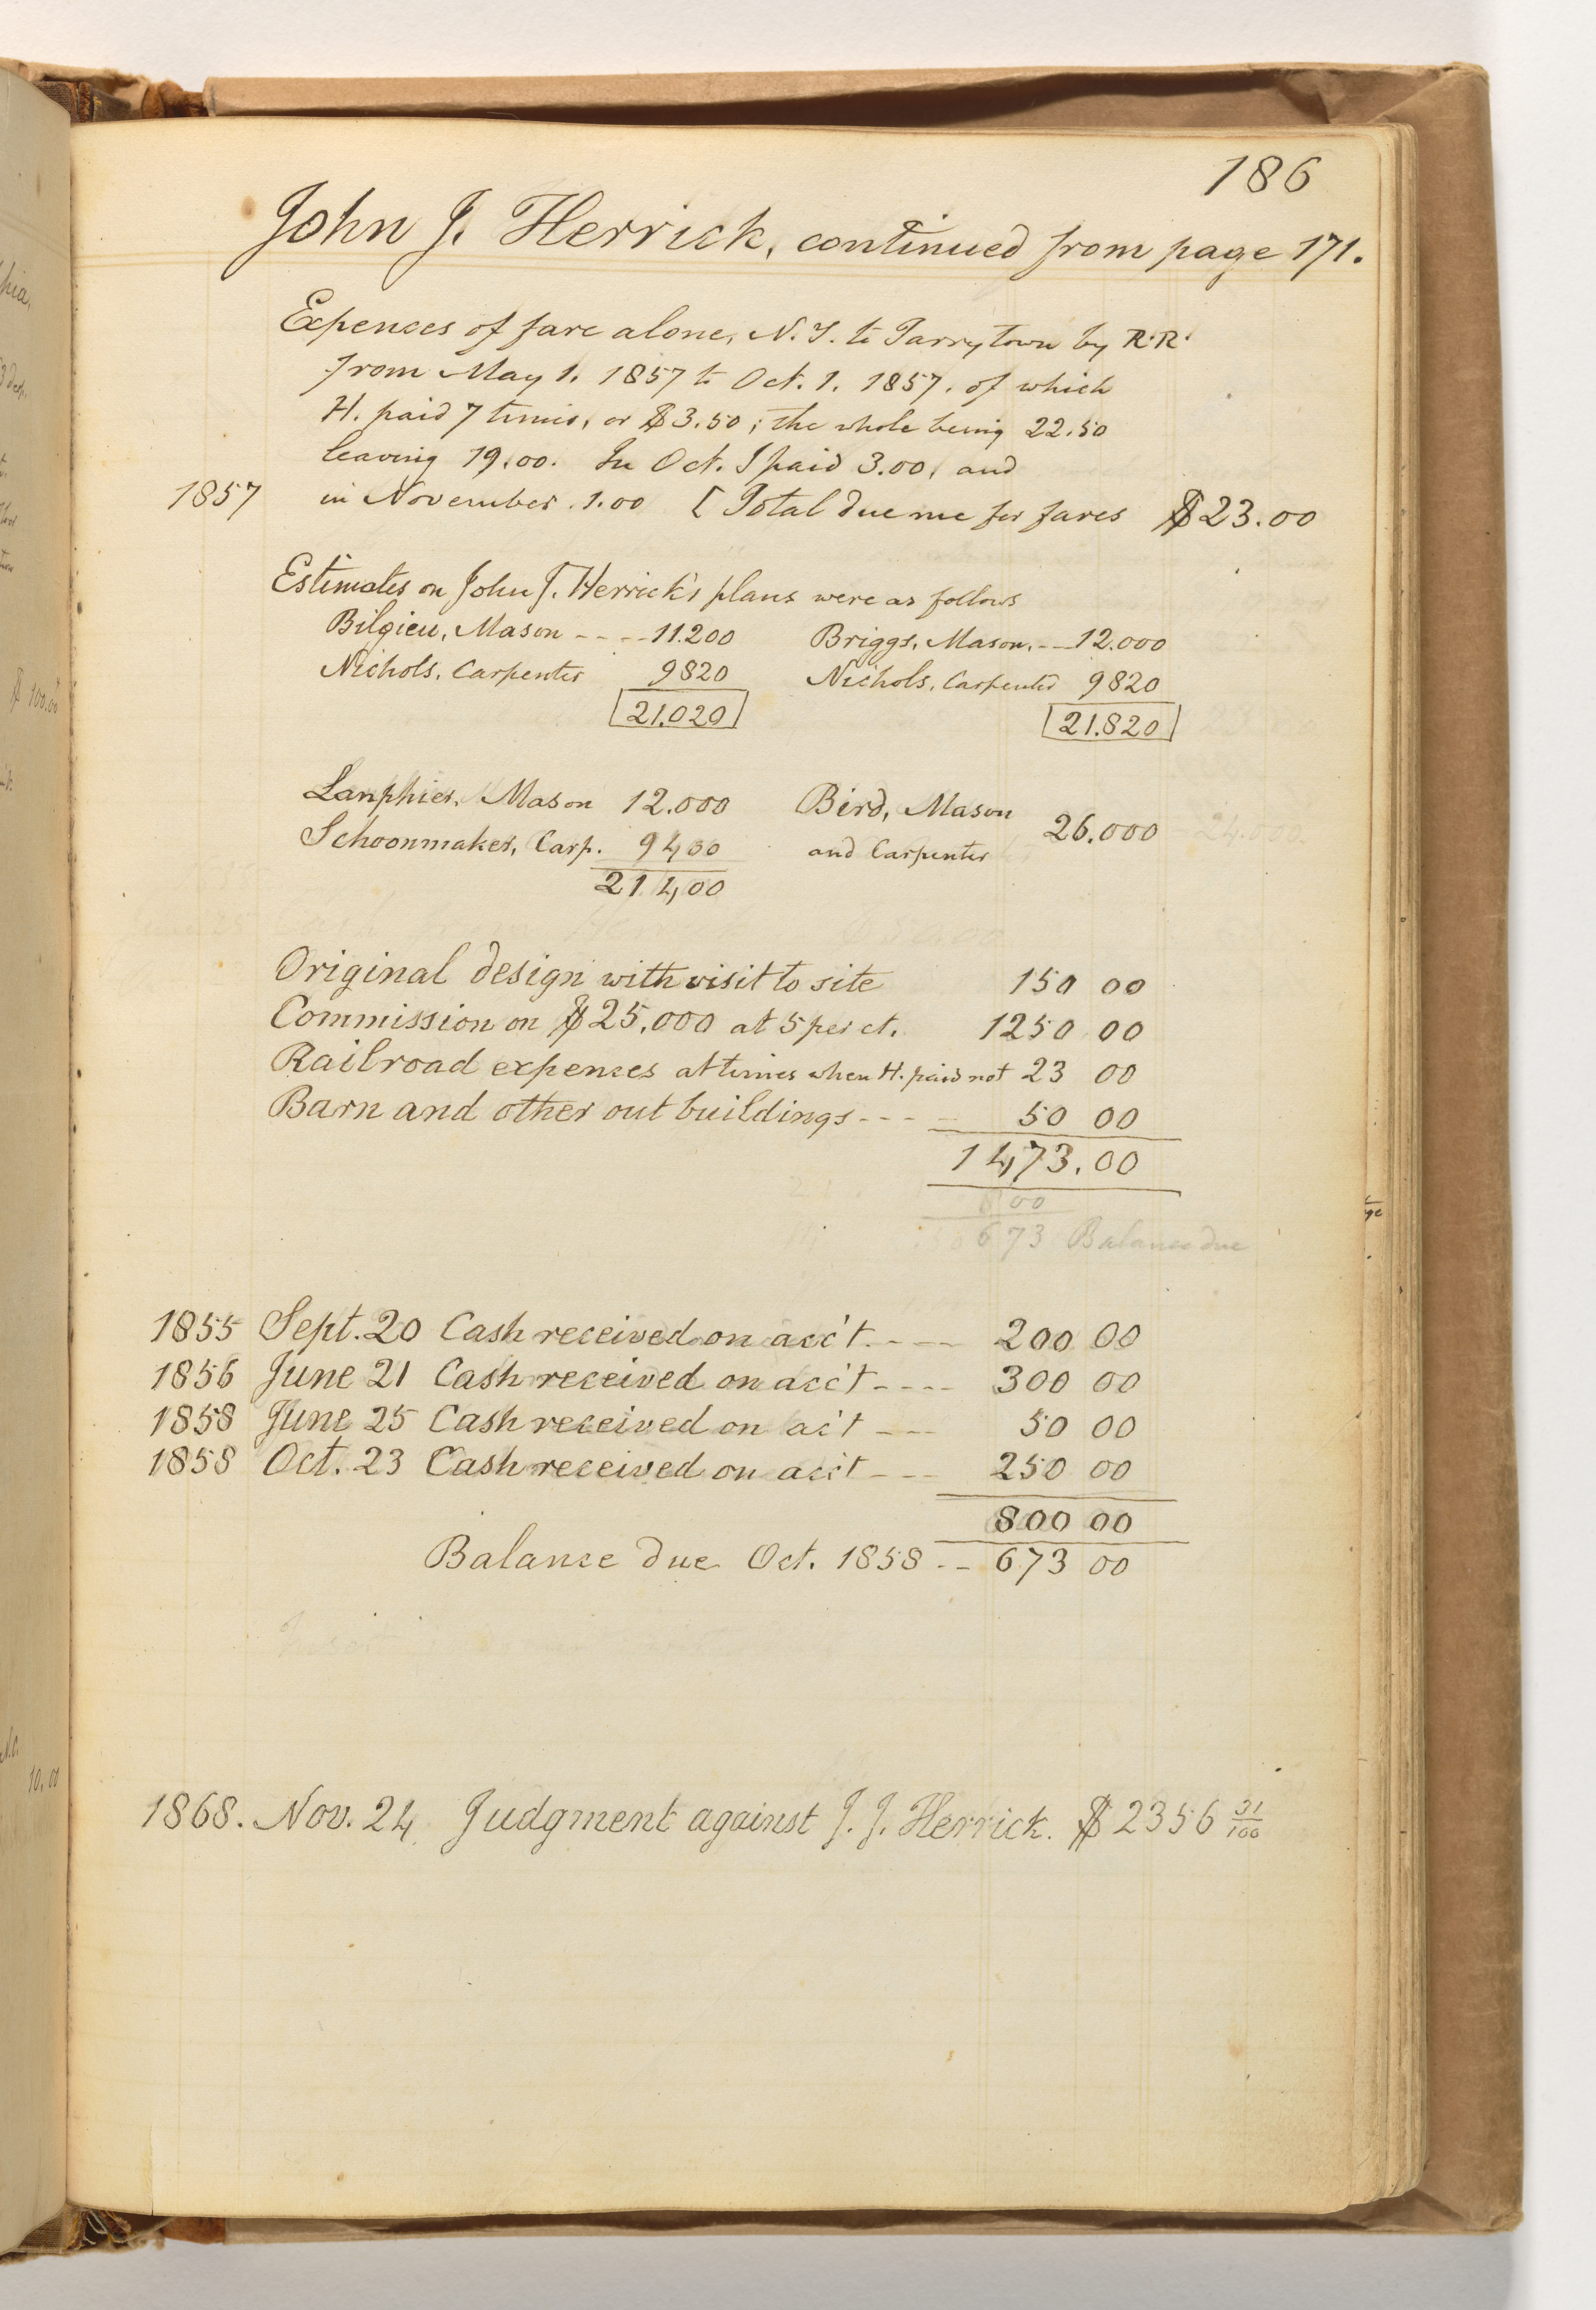 186
John J. Herrick, continued from page 171.
Expences of fare alone, N.Y. to Tarrytown by R.R.
from May 1. 1857 to Oct. 1. 1857. of which
H. paid 7 times, or $3.50; the whole being 22.50
leaving 19.00. In Oct. I paid 3.00, and
1857 in November .1.00 [Total due me for fares $23.00
Estimates on John J. Herrick's plans were as follows
Bilgieu, Mason ---- 11.200 Briggs, Mason. -- 12.000
Nichols, Carpenter 9820 Nichols, Carpenter 9820
21.020 21.820
Lanphier, Mason 12.000 Bird, Mason
Schoonmaker, Carp. 9400 and Carpenter 26.000 24.000
21400
Original design with visit to site 150 00
Commission on $25,000 at 5 per ct. 1250 00
Railroad expences at times when H. paid not 23 00
Barn and other out buildings ---- 50 00
1473.00
800
673 Balance due
1855 Sept. 20 Cash received on acc't ---- 200 00
1856 June 21 Cash received on acc't ---- 300 00
1858 June 25 Cash received on ac't --- 50 00
1858 Oct. 23 Cash received on acc't --- 250 00
800 00
Balance due Oct. 1858 -- 673 00
1868. Nov. 24 Judgment against J. J. Herrick. $2356 31/100
$100.00
10,00